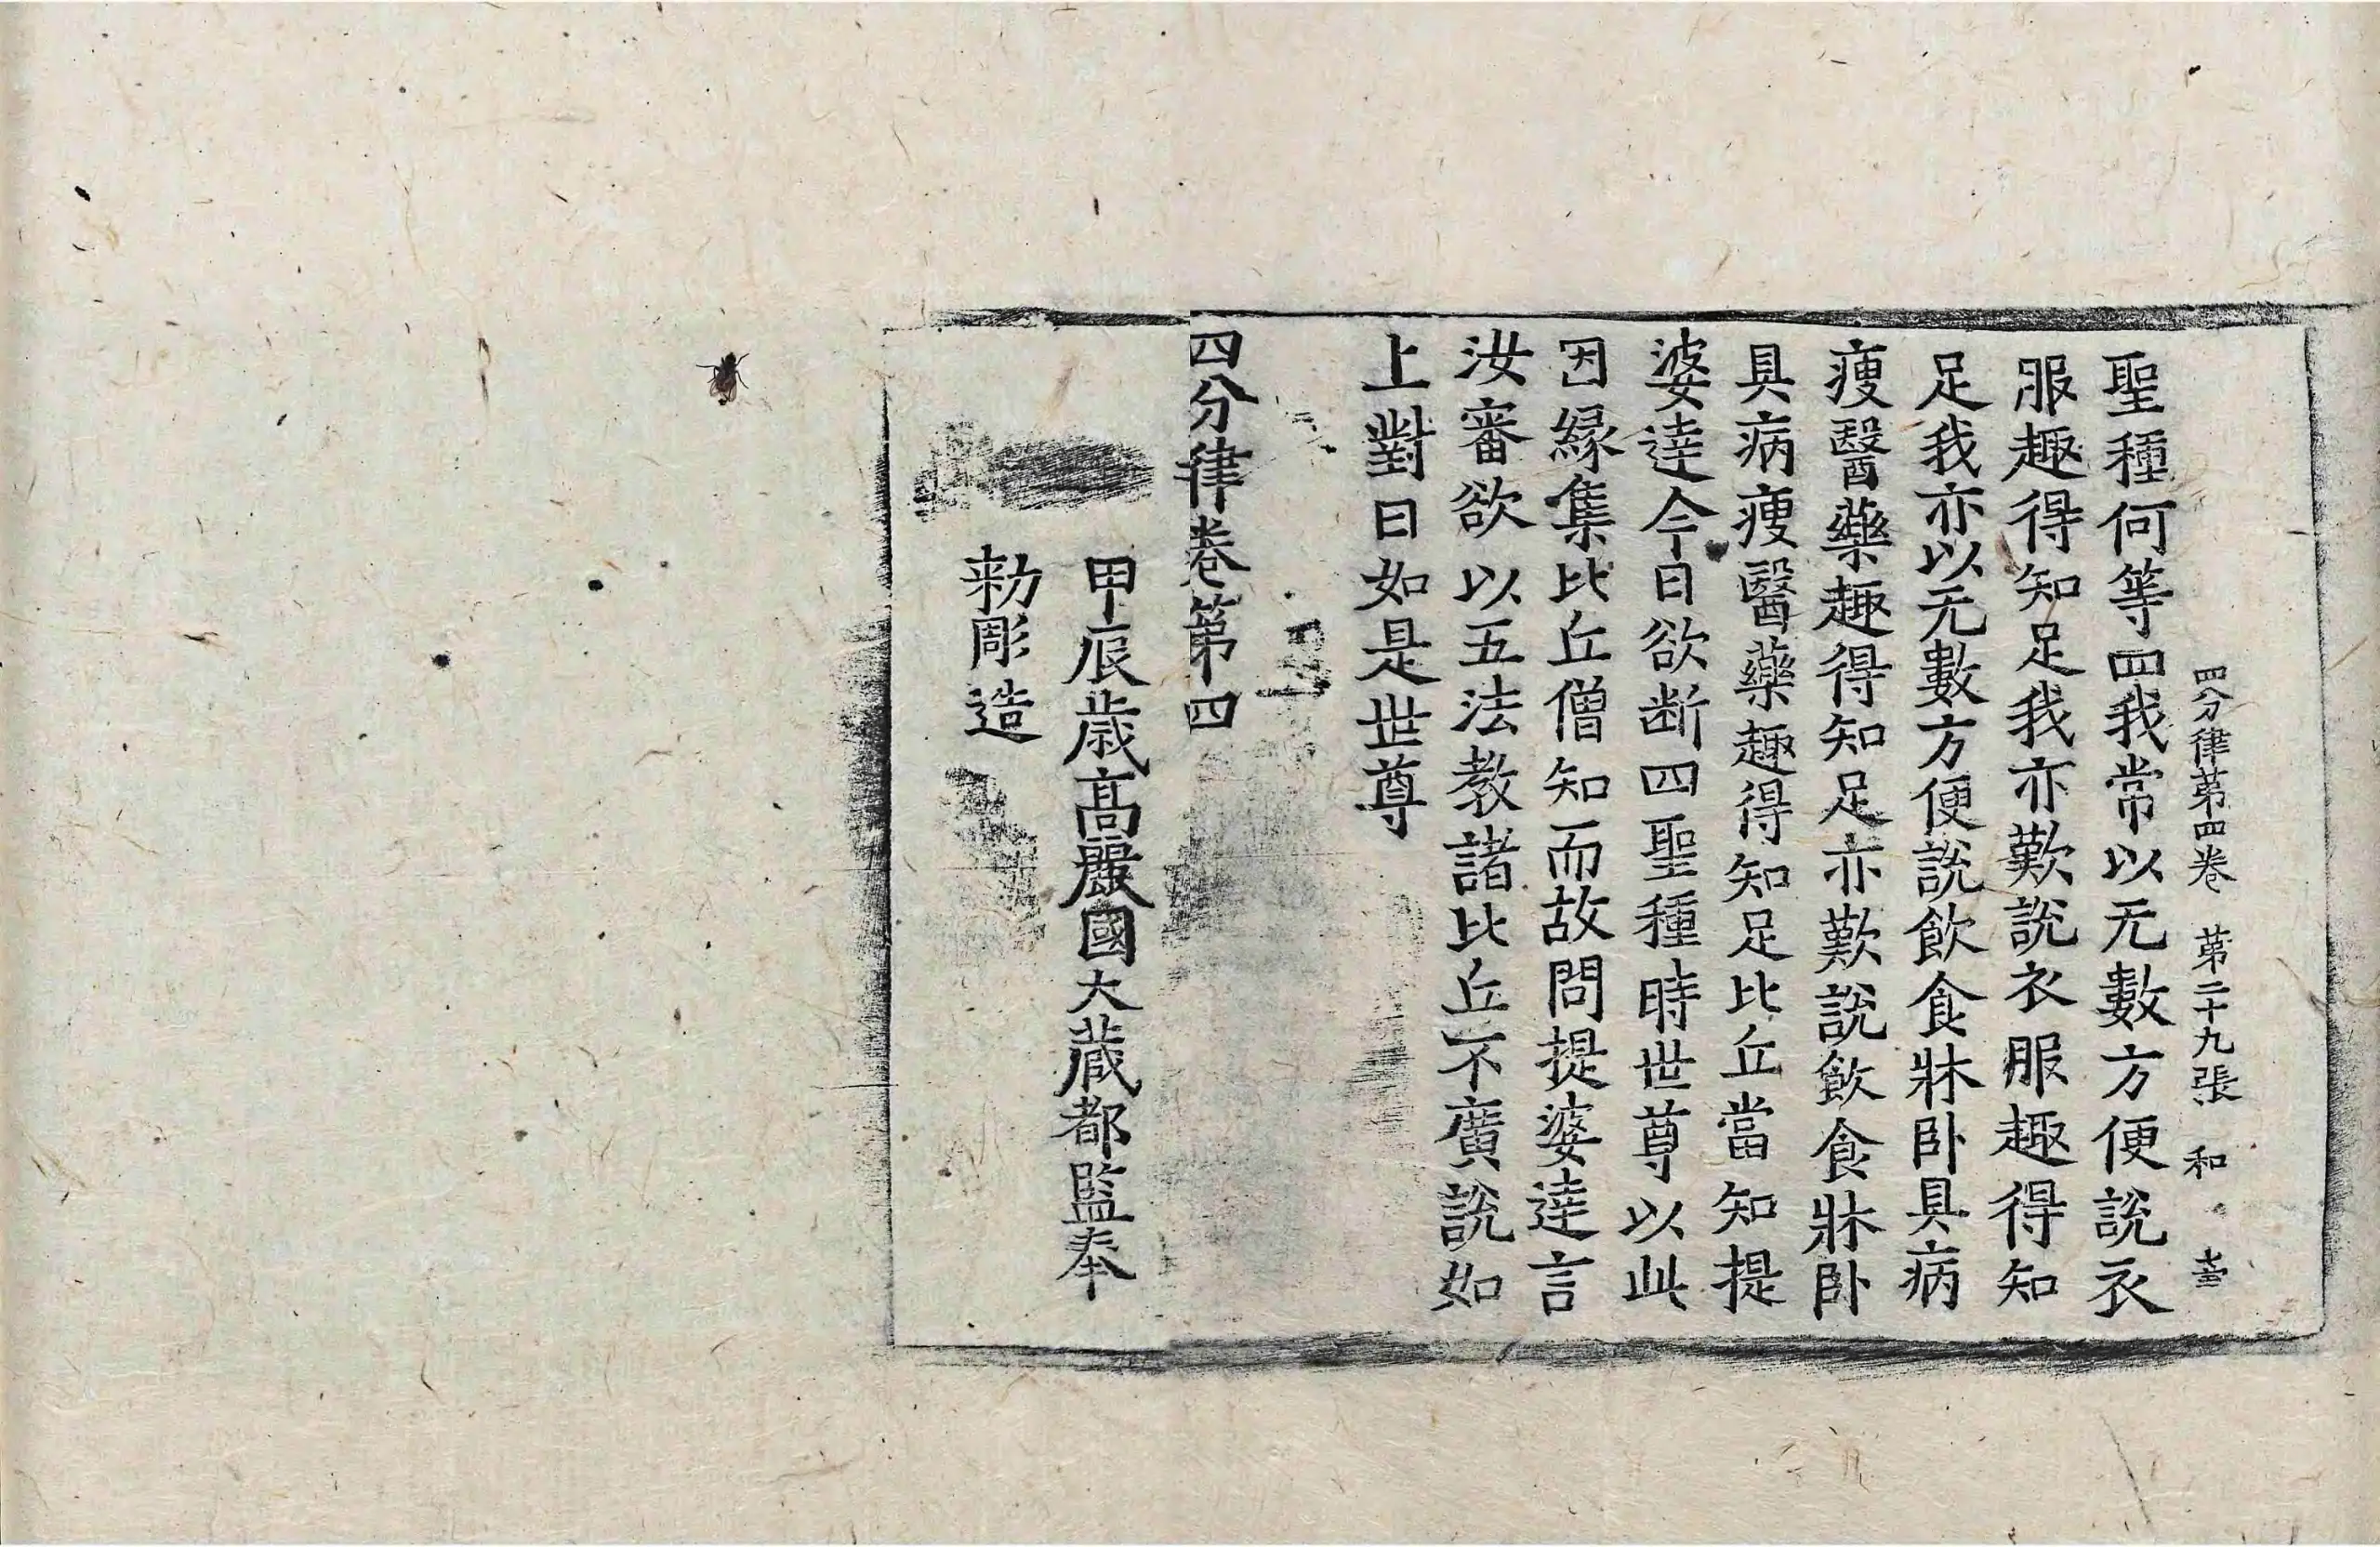 四分律第四卷 第二十九張 和 壴
聖種何等四我常以无數方便說衣
服趣得知足我亦歎說衣服趣得知
足我亦以无數方便說飲食牀卧具病
瘦醫藥趣得知足亦歎說飲食牀卧
具病瘦醫藥趣得知足比丘當知提
婆達今日欲断四聖種時世尊以此
因緣集比丘僧知而故問提婆達言
汝審欲以五法教諸比丘不廣說如
上對曰如是世尊
四分律卷第四
甲辰歲高麗國大藏都監奉
勑彫造